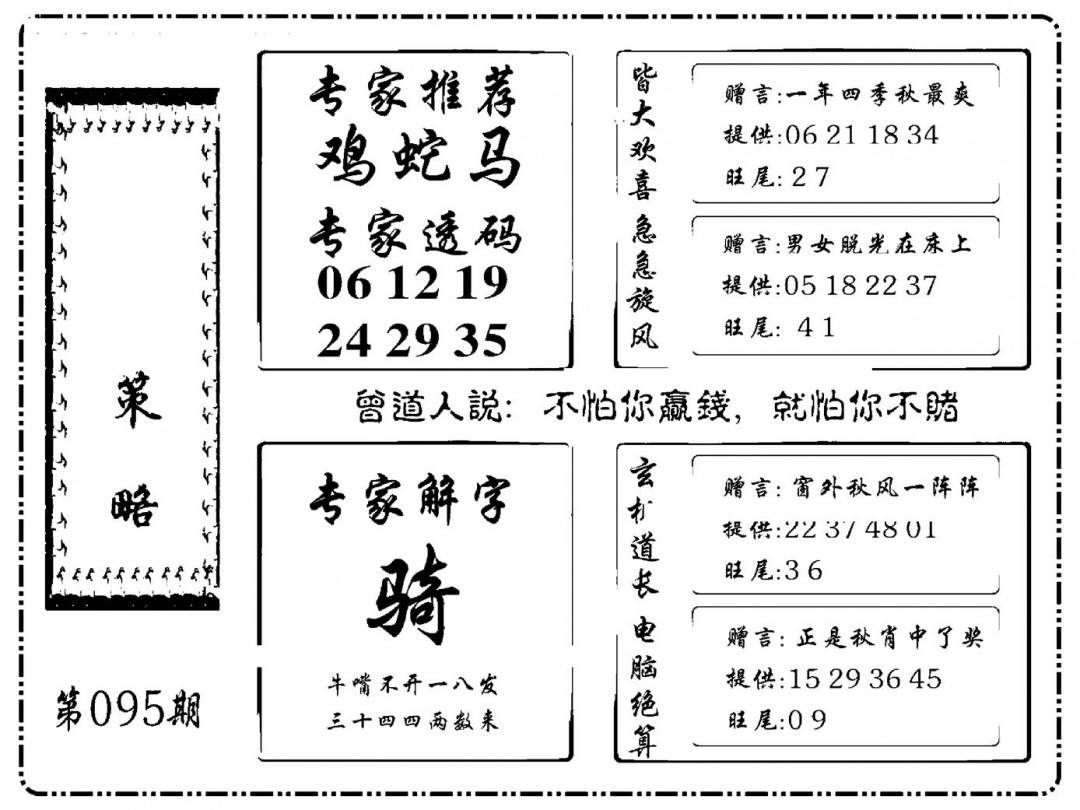 策略
第095期
专家推荐
鸡蛇马
专家透码
06 12 19
24 29 35
皆大欢喜
赠言:一年四季秋最爽
提供:06 21 18 34
旺尾: 2 7
急急旋风
赠言:男女脱光在床上
提供:05 18 22 37
旺尾: 4 1
曾道人説: 不怕你贏錢, 就怕你不賭
专家解字
骑
牛嘴不开一八发
三十四四两数来
玄机道长
赠言: 窗外秋风一阵阵
提供:22 37 48 01
旺尾:3 6
电脑绝算
赠言: 正是秋肖中了奖
提供:15 29 36 45
旺尾:0 9